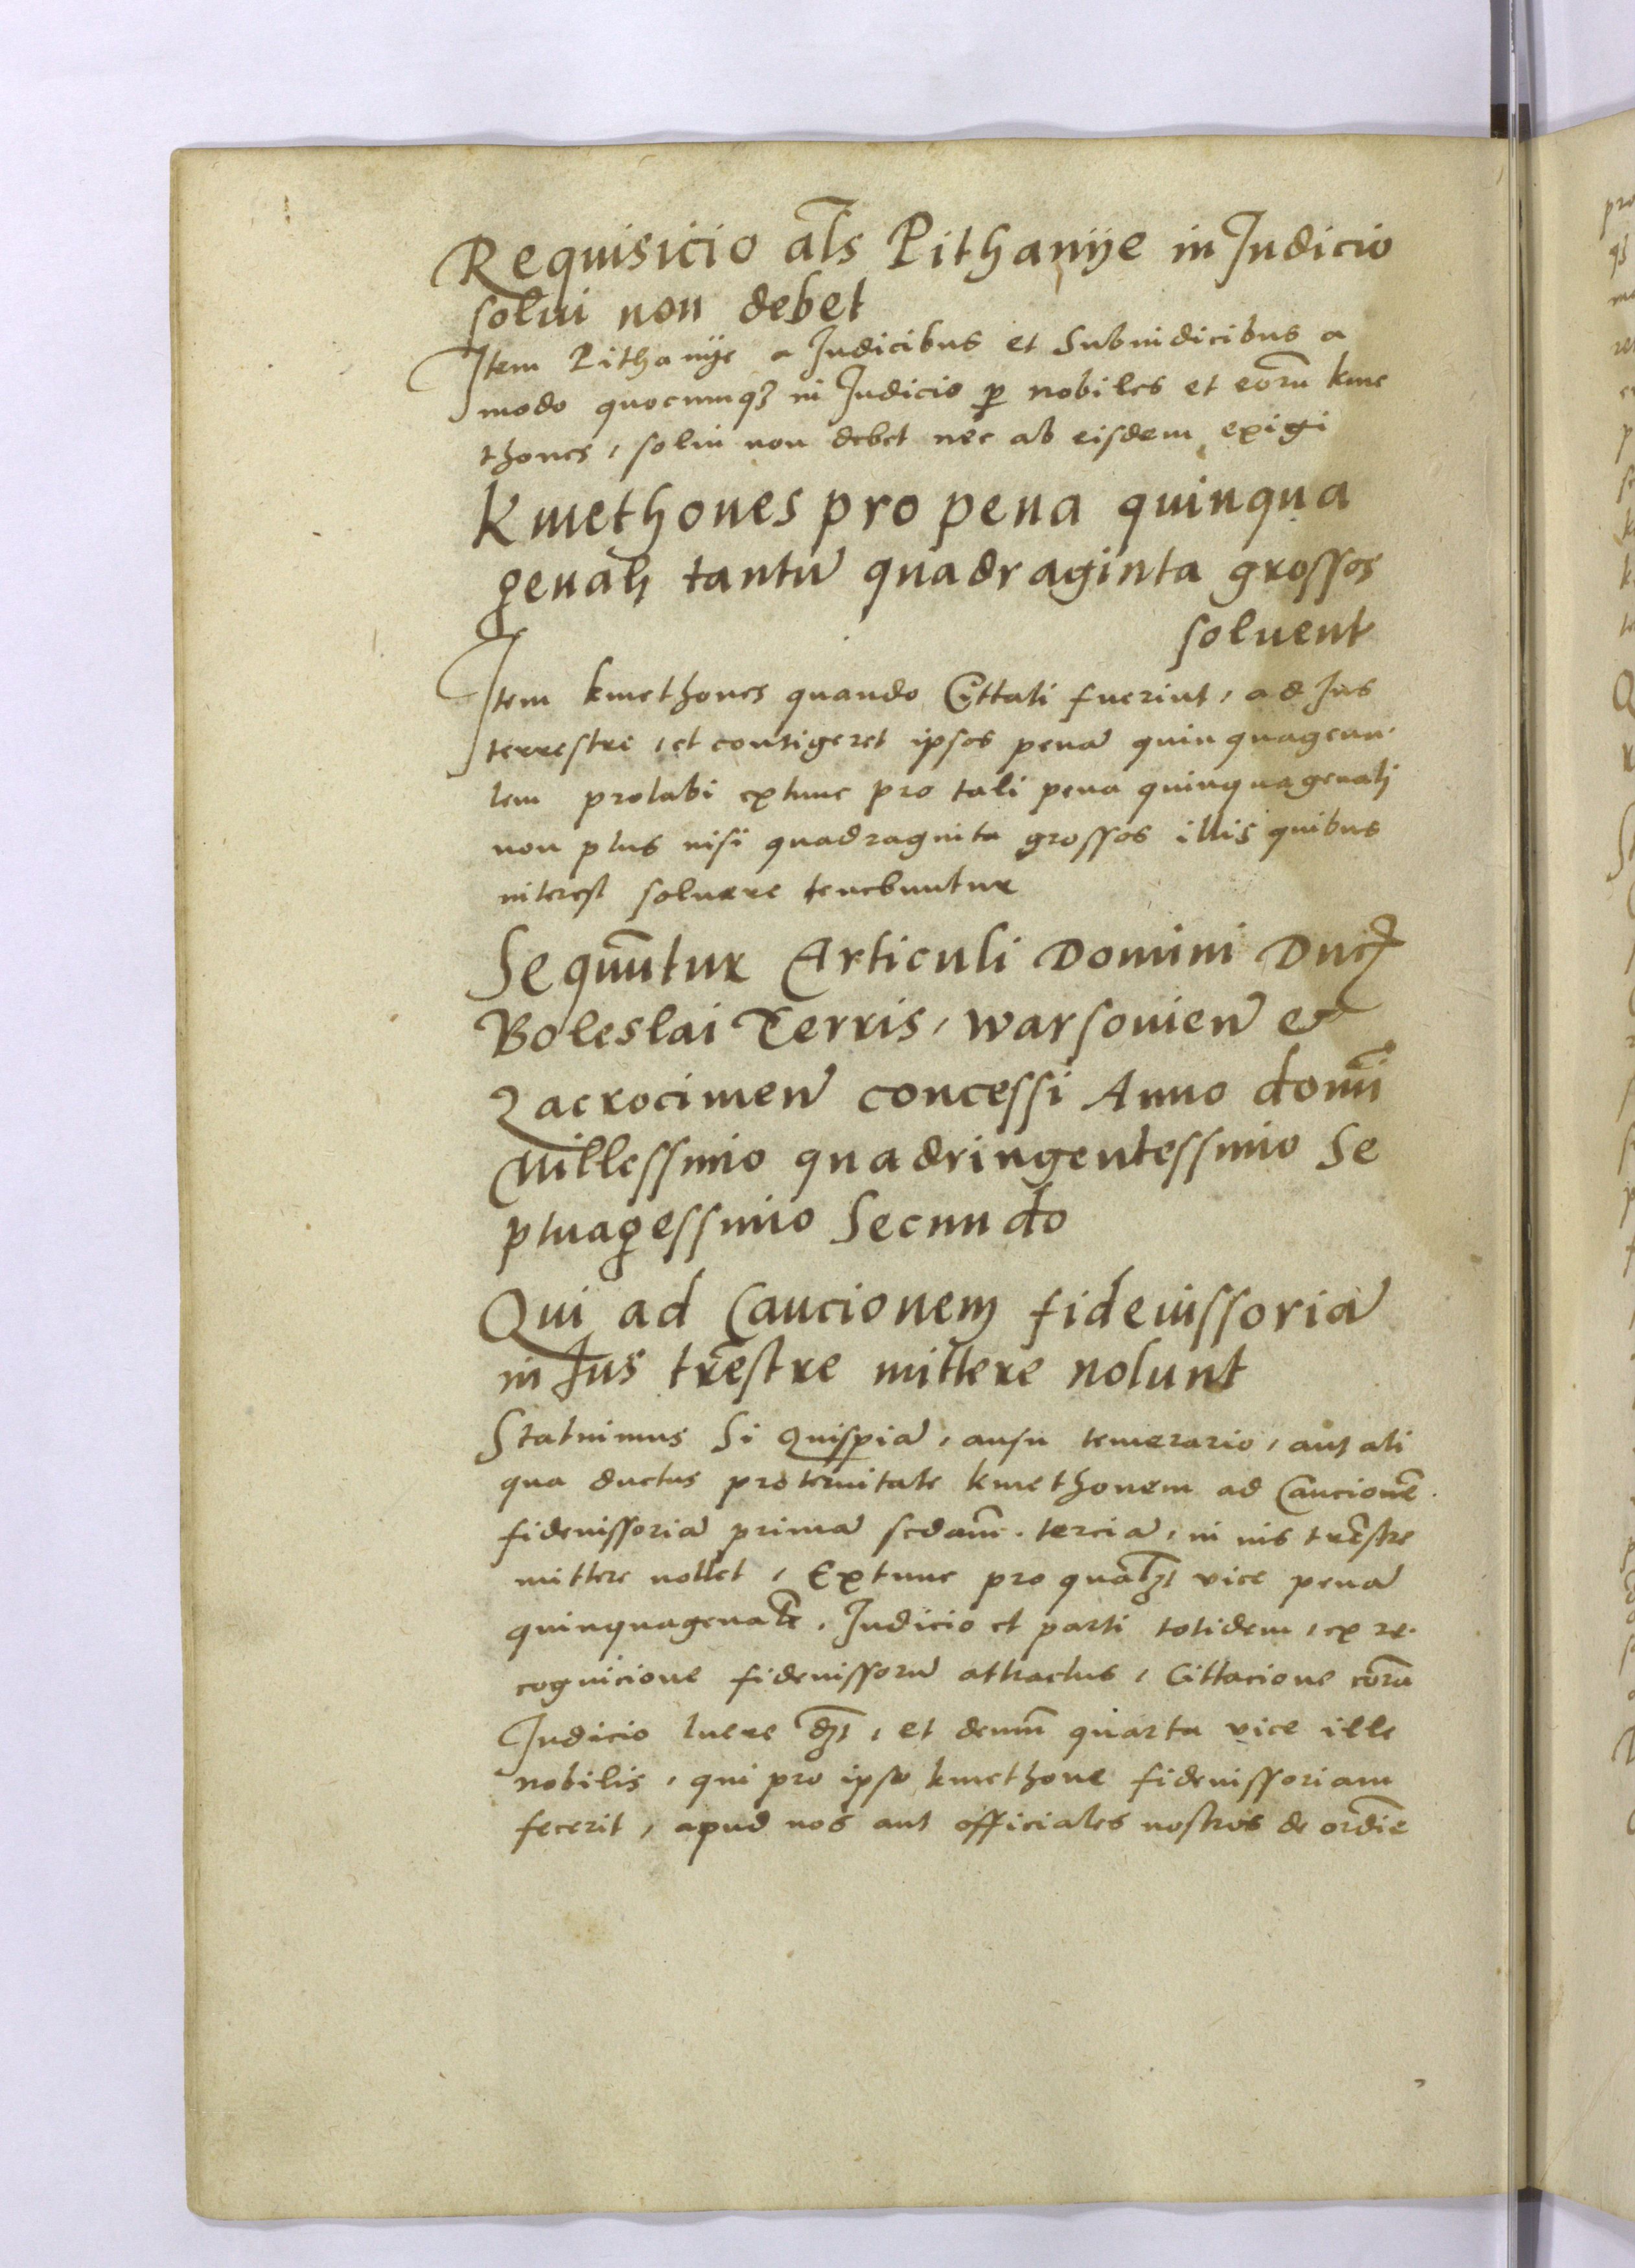 Requisicio al̃s Pithanÿe in Judicio
solui non debet
Item Pithanÿe a Judicibus et Subiudicibus a
modo quocumqꝫ in Judicio ꝑ nobiles et eor̃u kme
thones, solui non debet nec ab eisdem exigi
Kmethones pro pena quinqua
genali tantũ quadraginta grossos
soluent
Item kmethones quando Cittati fuerint, ad Jus
terrestre, et contigeret ipsos penã quinquagena
lem prolabi extunc pro tali pena quinquagenali
non plus nisi quadraginta grossos illis quibus
interest soluere tenebuntur
Sequũtur Articuli Domini Duc̃
Boleslai Terris, warsouieñ et
Zacrocimeñ concessi Anno domĩ
Millessimo quadringentessimo Se
ptuagessimo Secundo
Qui ad Caucionem fideiussoriã
in Jus tr̃estre mittere nolunt
Statuimus Si Quispiã, ausu temerario, aut ali
qua ductus proteruitate kmethonem ad Caucionẽ
fideiussoriã primã scdam̃ terciã, in ius tr̃estre
mittere nollet, Extunc pro qual̃ꝫt vice penã
quinquagenal̃e, Judicio et parti totidem, ex re
cognicione fideiussorũ attractus, Cittacione cor̃a
Judicio luere dꝫ̃t, et demũ quarta vice ille
nobilis, qui pro ipso kmethone fideiussoriam
fecerit, apud nos aut officiales nostros de ordĩe